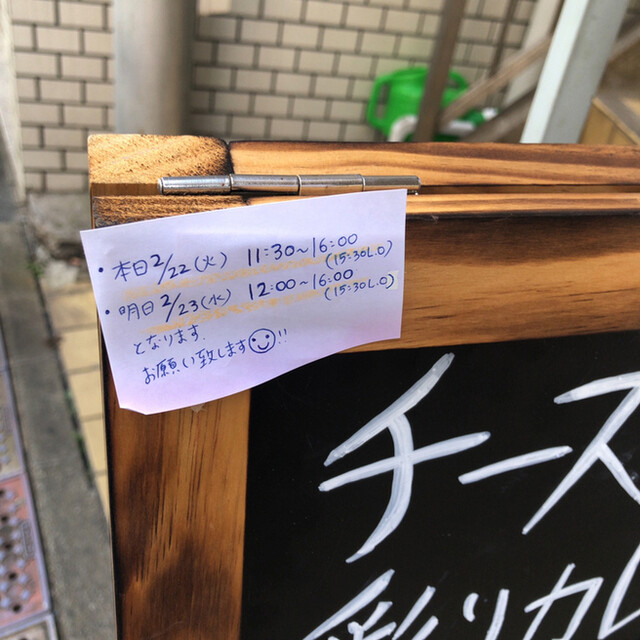 ・本日2/22(火) 11:30~16:00
(15:30L.O)
・明日2/23(水) 12:00~16:00
(15:30L.O)
となります
お願い致します☺!!
チース
彩りカレ